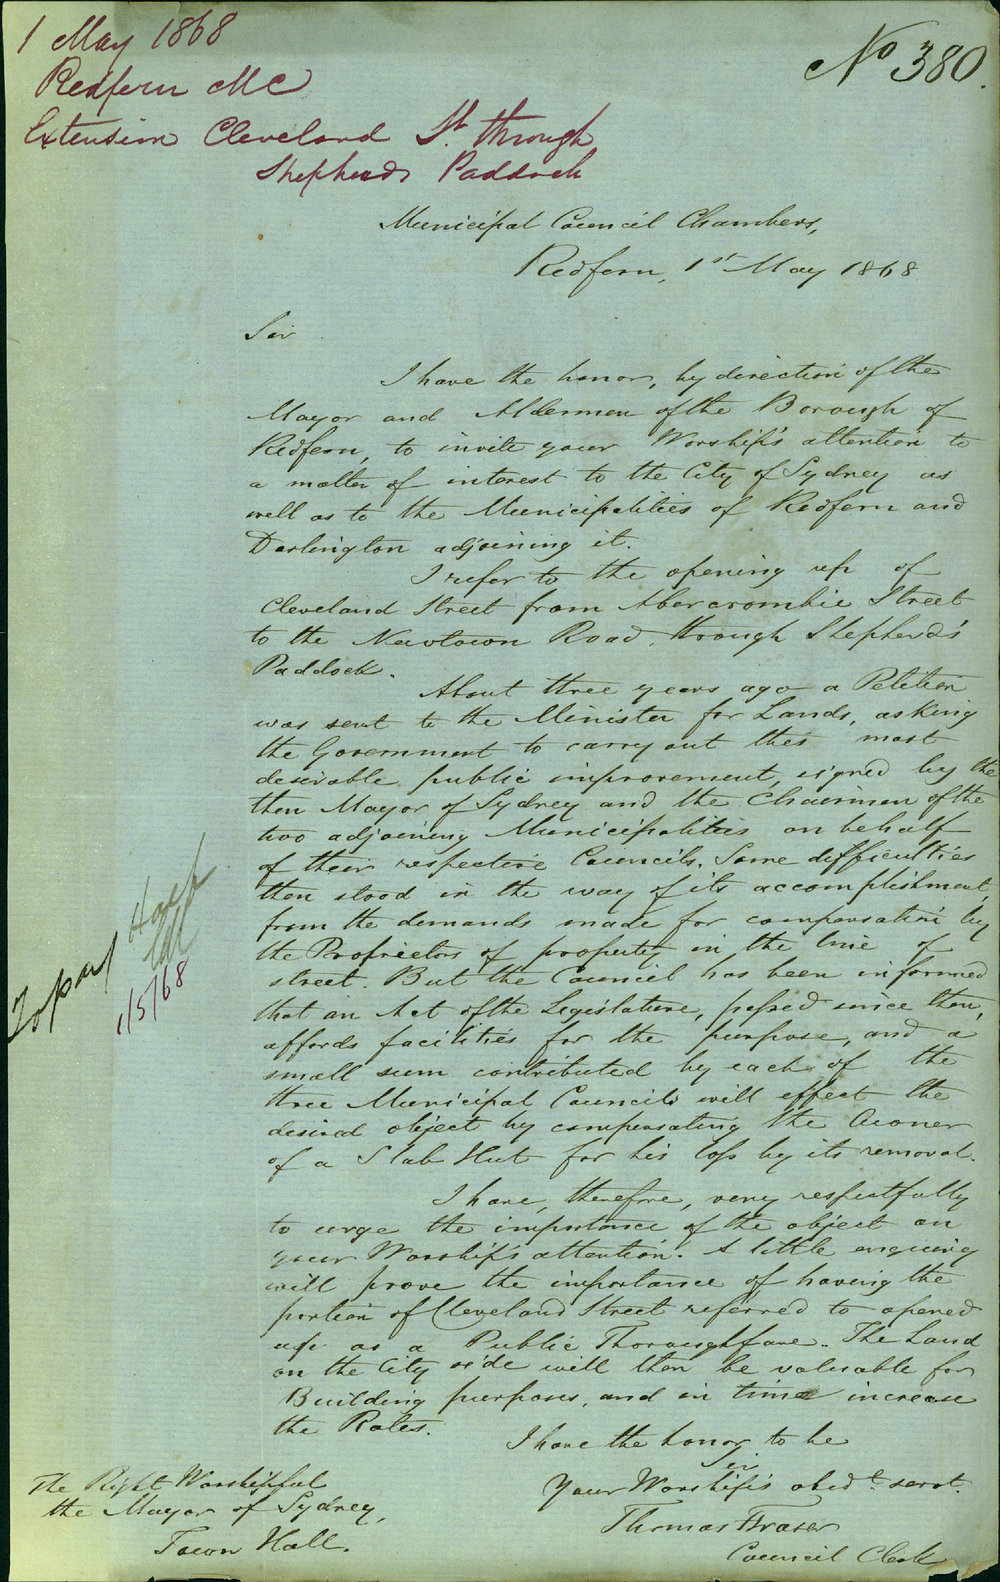 1 May 1868
No 380.
Redfern MC
Extension Cleveland St. through
Shepherds Paddock
Municipal Council Chambers,
Redfern, 1st May 1868
Sir
I have the honor, by direction of the
Mayor and Aldermen of the Borough of
Redfern, to invite your Worship's attention to
a matter of interest to the City of Sydney as
well as to the Municipalities of Redfern and
Darlington adjoining it.
I refer to the opening up of
Cleveland Street from Abercrombie Street
to the Newtown Road, through Shepherd's
Paddock.
About three years ago a Petition
was sent to the Minister for Lands, asking
the Government to carry out this most
desirable public improvement, signed by the
then Mayor of Sydney and the Chairmen of the
two adjoining Municipalities on behalf
of their respective Councils. Some difficulties
then stood in the way of its accomplishment,
from the demands made for compensation by
the Proprietors of property in the line of
street. But the Council has been informed
that an Act of the Legislature, passed since then,
affords facilities for the purpose, and a
small sum contributed by each of the
three Municipal Councils will effect the
desired object by compensating the Owner
of a Slab Hut for his loss by its removal.
I have, therefore, very respectfully
to urge the importance of the object on
your Worship's attention. A little enquiry
will prove the importance of having the
portion of Cleveland Street referred to opened
up as a Public Thoroughfare. The Land
on the City side will then be valuable for
Building purposes, and in time increase
the Rates.
I have the honor to be
Sir
Your Worship's obedt. servt.
Thomas Fraser
Council Clerk
The Right Worshipful
the Mayor of Sydney,
Town Hall.
1/5/68